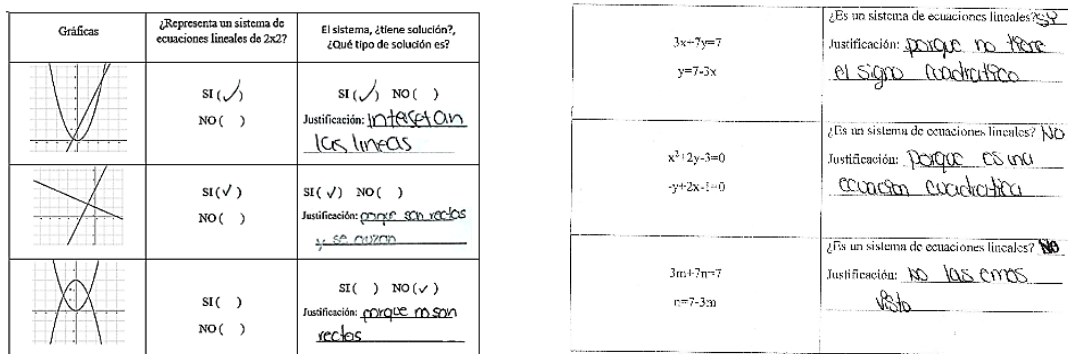 Gráficas
¿Representa un sistema de
ecuaciones lineales de 2x2?
El sistema, ¿tiene solución?,
¿Qué tipo de solución es?
SI (✓)
NO ( )
SI (✓) NO ( )
Justificación: Intersetan
las lineas
SI (✓)
NO ( )
SI( ✓) NO ( )
Justificación: porque son rectas
y se cruzan
SI ( )
NO ( )
SI( ) NO (✓)
Justificación: porque no son
rectas
3x+7y=7
y=7-3x
¿Es un sistema de ecuaciones lineales?
Justificación: porque no tiene
el signo cuadratico
x²+2y-3=0
-y+2x-1=0
¿Es un sistema de ecuaciones lineales? NO
Justificación: porque es una
ecuacion cuadratica
3m+7n=7
n=7-3m
¿Es un sistema de ecuaciones lineales? No
Justificación: no las emos
visto